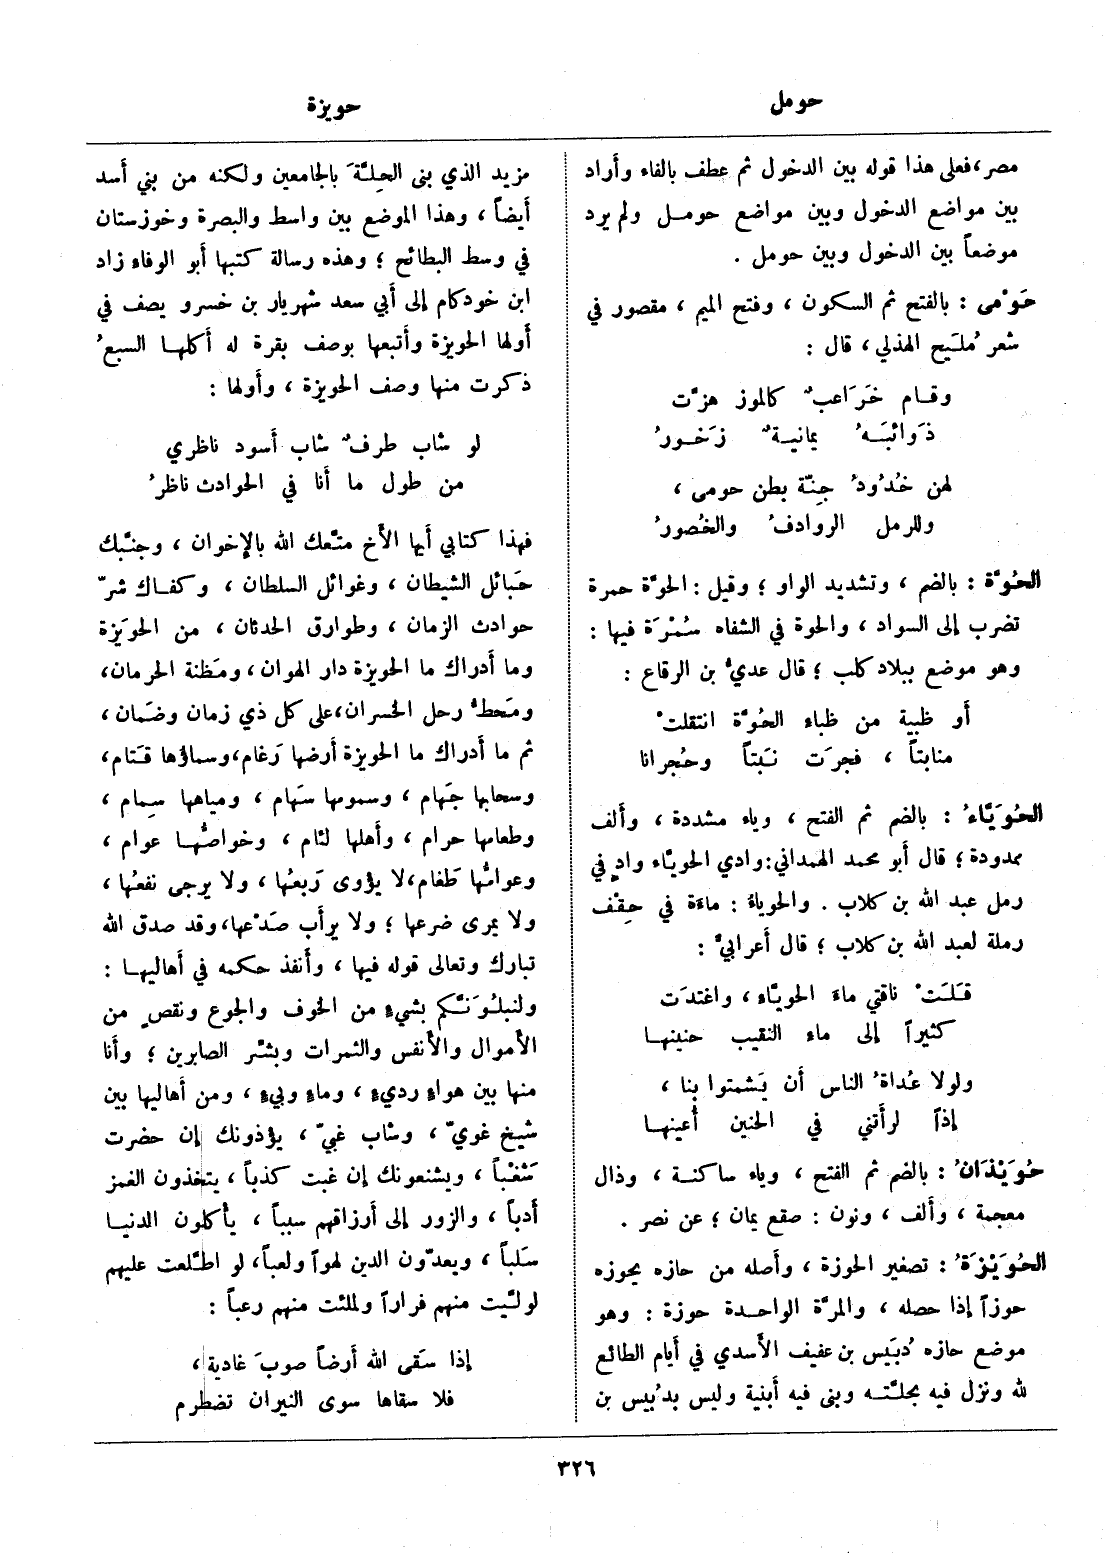 حومل
حويزة
مصر، فعلى هذا قوله بين الدخول ثم عطف بالفاء وأراد
بين مواضع الدخول وبين مواضع حومل ولم يرد
موضعاً بين الدخول وبين حومل .
حَوْمى : بالفتح ثم السكون ، وفتح الميم ، مقصور في
شعر مُليح الهذلي ، قال :
وقام خَرَاعبٌ كالموز هزَّت
ذَوائبَهُ يمانيةٌ زَخورُ
لهن خُدُودُ جِنّة بطن حومى ،
وللرمل الروادفُ والخُصورُ
الحُوَّة : بالضم ، وتشديد الواو ؛ وقيل : الحوَّة حمرة
تضرب إلى السواد ، والحوة في الشفاه سُمْرَة فيها :
وهو موضع ببلاد كلب ؛ قال عديُّ بن الرقاع :
أو ظبية من ظباء الحُوَّة انتقلتْ
منابتاً ، فجرَت نَبتاً وحُجرانا
الحُوَيَّاءُ : بالضم ثم الفتح ، وياء مشددة ، وألف
ممدودة ؛ قال أبو محمد الهمداني: وادي الحويَّاء وادٍ في
رمل عبد الله بن كلاب . والحوياءُ : ماءَة في حِقْف
رملة لعبد الله بن كلاب ؛ قال أعرابيٌّ :
قَلَتْ ناقتي ماءَ الحويَّاء ، واغتدَت
كثيراً إلى ماء النقيب حنينها
ولولا عُداةُ الناس أن يَشمتوا بنا ،
إذاً لرأتني في الحنين أعينها
حُوَيْذَانُ : بالضم ثم الفتح ، وياء ساكنة ، وذال
معجمة ، وألف ، ونون : صقع يمان ؛ عن نصر .
الحُوَيْزَةُ : تصغير الحوزة ، وأصله من حازه يحوزه
حوزاً إذا حصله ، والمرَّة الواحدة حوزة : وهو
موضع حازه دُبَيس بن عفيف الأسدي في أيام الطائع
لله ونزل فيه بحلَّته وبنى فيه أبنية وليس بدُبيس بن
مزيد الذي بنى الحِلَّةَ بالجامعين ولكنه من بني أسد
أيضاً ، وهذا الموضع بين واسط والبصرة وخوزستان
في وسط البطائح ؛ وهذه رسالة كتبها أبو الوفاء زاد
ابن خودكام إلى أبي سعد شهريار بن خسرو يصف في
أولها الحويزة وأتبعها بوصف بقرة له أكلها السبعُ
ذكرت منها وصف الحويزة ، وأولها :
لو شاب طرفٌ شاب أسود ناظري
من طول ما أنا في الحوادث ناظرُ
فهذا كتابي أيها الأخ متَّعك الله بالإخوان ، وجنَّبك
حَبائل الشيطان ، وغوائل السلطان ، وكفاك شرّ
حوادث الزمان ، وطوارق الحدثان ، من الحوَيزة
وما أدراك ما الحويزة دار الهوان ، ومَظنة الحرمان،
ومَحطُّ رحل الخسران، على كل ذي زمان وضَمان ،
ثم ما أدراك ما الحويزة أرضها رَغام، وسماؤها قَتام،
وسحابها جَهام ، وسمومها سَهام ، ومياهها سِمام ،
وطعامها حرام ، وأهلها لئام ، وخواصُّها عوام ،
وعوامُّها طَغام، لا يؤوى رَبعُها ، ولا يرجى نفعُها ،
ولا يمرى ضرعها ؛ ولا يرأب صَدْعها، وقد صدق الله
تبارك وتعالى قوله فيها ، وأنفذ حكمه في أهاليها :
ولنبلُوَنَّكم بشيءٍ من الخوف والجوع ونقصٍ من
الأموال والأنفس والثمرات وبشّر الصابرين ؛ وأنا
منها بين هواءٍ رديءٍ ، وماءٍ وبيءٍ ، ومن أهاليها بين
شيخ غويّ ، وشاب غبيّ ، يؤذونك إن حضرت
شَغْباً ، ويشنعونك إن غبت كذباً ، يتخذون الغمز
أدباً ، والزور إلى أرزاقهم سبباً ، يأكلون الدنيا
سَلباً ، ويعدّون الدين لهواً ولعباً، لو اطَّلعت عليهم
لولَّيت منهم فراراً ولملئت منهم رعباً :
إذا سَقى الله أرضاً صوبَ غادية ،
فلا سقاها سوى النيران تضطرم
٣٢٦